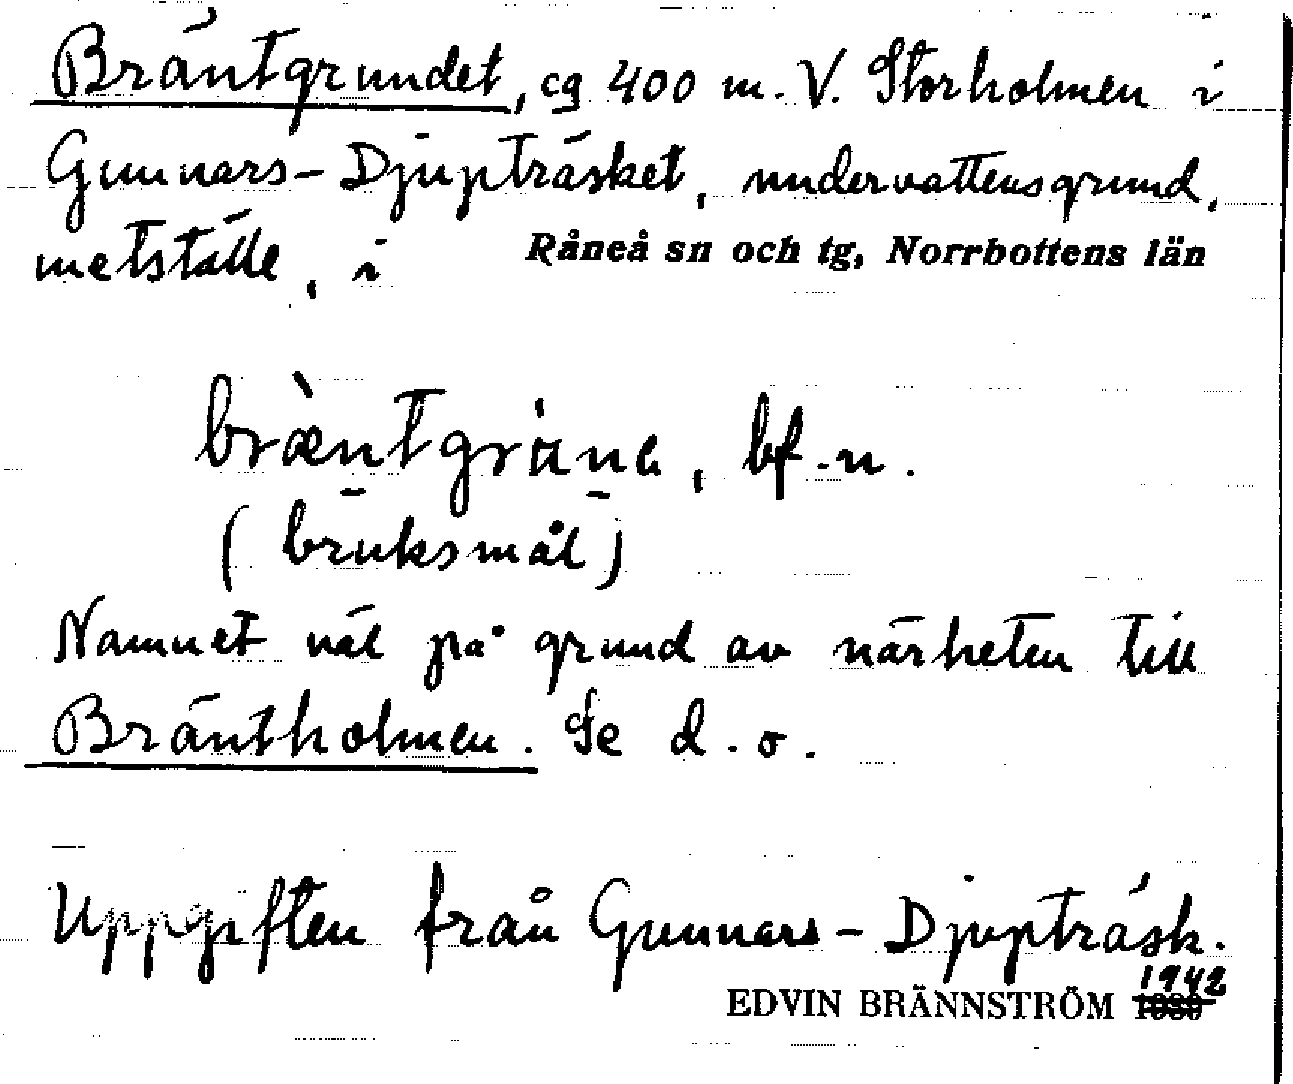 Bräntgrundet, cg 400 m. V. Storholmen i
Gunnars-Djupträsket, undervattensgrund,
metställe, i Råneå sn och tg, Norrbottens län
bræ̀ntgrüna, bf. n.
(bruksmål)
Namnet väl på grund av närheten till
Bräntholmen. Se d. o.
Uppgiften från Gunnars-Djupträsk.
EDVIN BRÄNNSTRÖM 1942